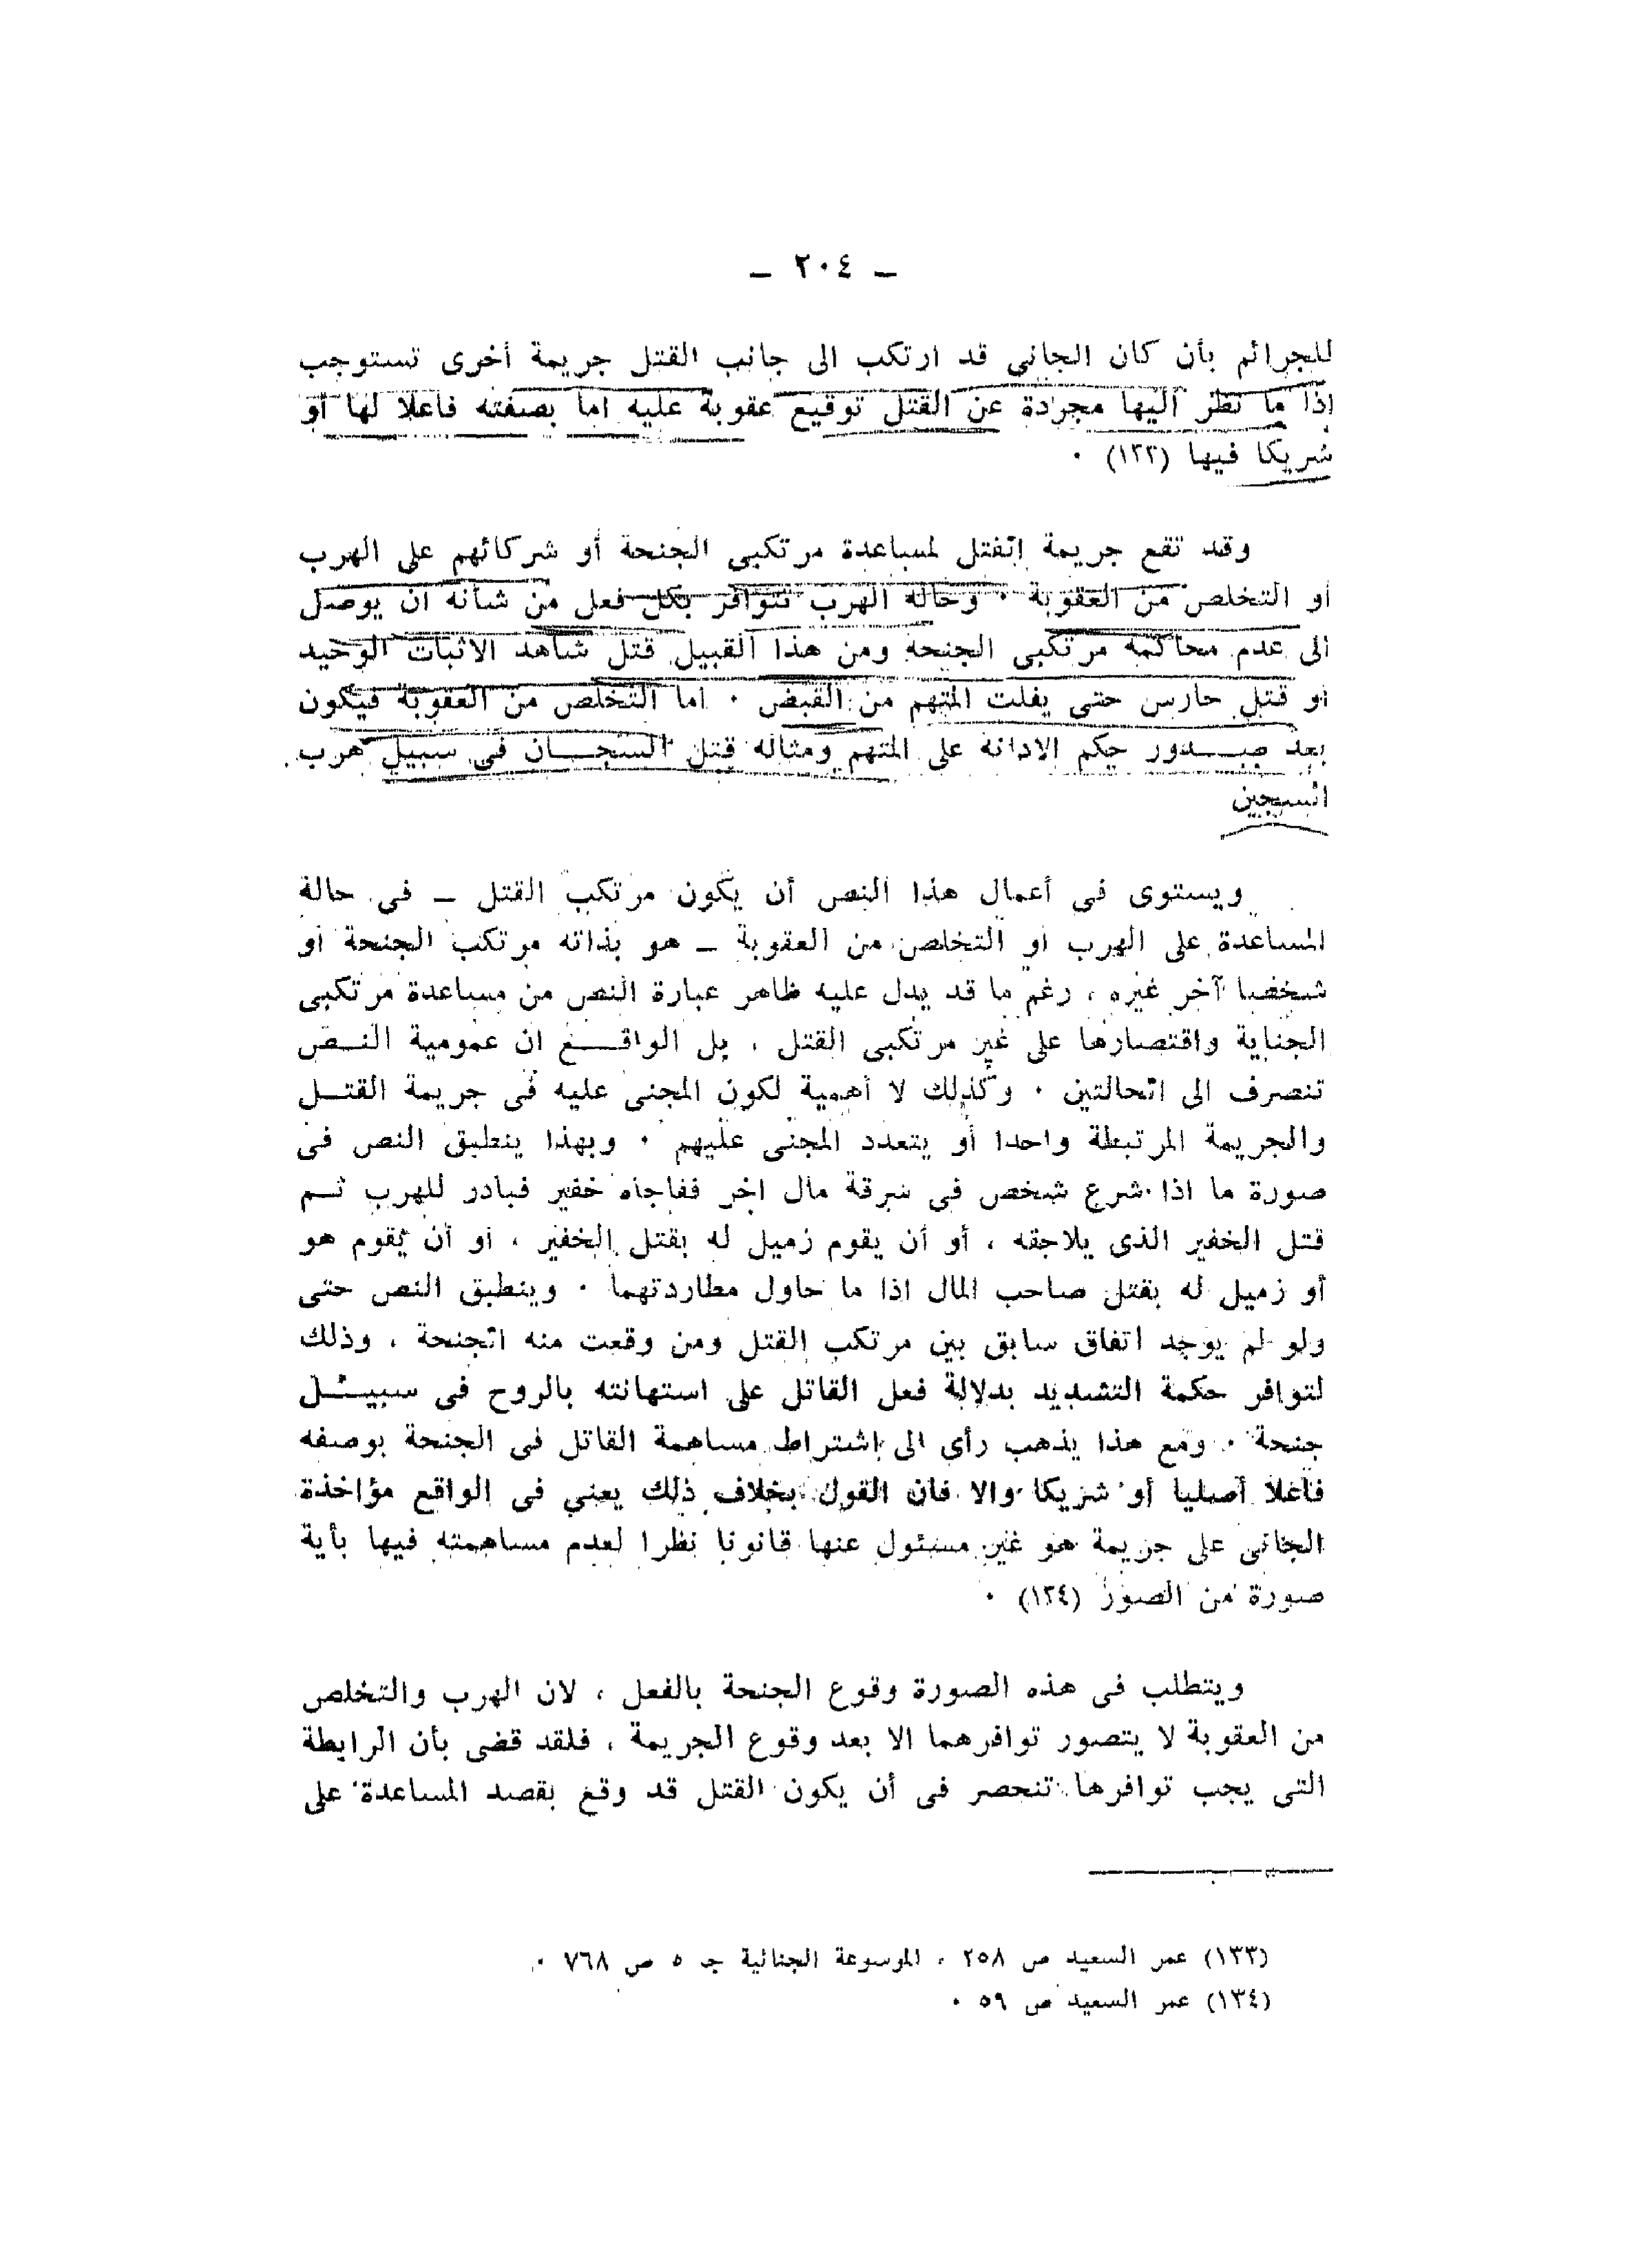 ـ ٢٠٤ ـ
للجرائم بأن كان الجانى قد ارتكب الى جانب القتل جريمة أخرى تستوجب
اذا ما نظر اليها مجردة عن القتل توقيع عقوبة عليه اما بصفته فاعلا لها أو
شريكا فيها (١٣٣) ٠
وقد تقع جريمة القتل لمساعدة مرتكبى الجنحة أو شركائهم على الهرب
أو التخلص من العقوبة ٠ وحالة الهرب تتوافر بكل فعل من شأنه ان يوصل
الى عدم محاكمة مرتكبى الجنحة ومن هذا القبيل قتل شاهد الاثبات الوحيد
أو قتل حارس حتى يفلت المتهم من القبض ٠ اما التخلص من العقوبة فيكون
بعد صـــدور حكم الادانة على المتهم ومثاله قتل السجـــان فى سبيل هرب
السجين
ويستوى فى أعمال هذا النص أن يكون مرتكب القتل ـ فى حالة
المساعدة على الهرب أو التخلص من العقوبة ـ هو بذاته مرتكب الجنحة أو
شخصا آخر غيره ، رغم ما قد يدل عليه ظاهر عبارة النص من مساعدة مرتكبى
الجناية واقتصارها على غير مرتكبى القتل ، بل الواقـــع ان عمومية النــص
تنصرف الى الحالتين ٠ وكذلك لا أهمية لكون المجنى عليه فى جريمة القتــل
والجريمة المرتبطة واحدا أو يتعدد المجنى عليهم ٠ وبهذا ينطبق النص فى
صورة ما اذا شرع شخص فى سرقة مال اخر ففاجأه خفير فبادر للهرب ثــم
قتل الخفير الذى يلاحقه ، أو أن يقوم زميل له بقتل الخفير ، أو أن يقوم هو
أو زميل له بقتل صاحب المال اذا ما حاول مطاردتهما ٠ وينطبق النص حتى
ولو لم يوجد اتفاق سابق بين مرتكب القتل ومن وقعت منه الجنحة ، وذلك
لتوافر حكمة التشديد بدلالة فعل القاتل على استهانته بالروح فى سبيــل
جنحة ٠ ومع هذا يذهب رأى الى اشتراط مساهمة القاتل فى الجنحة بوصفه
فاعلا أصليا أو شريكا والا فان القول بخلاف ذلك يعني فى الواقع مؤاخذة
الجانى على جريمة هو غير مسئول عنها قانونا نظرا لعدم مساهمته فيها بأية
صورة من الصور (١٣٤) ٠
ويتطلب فى هذه الصورة وقوع الجنحة بالفعل ، لان الهرب والتخلص
من العقوبة لا يتصور توافرهما الا بعد وقوع الجريمة ، فلقد قضى بأن الرابطة
التى يجب توافرها تنحصر فى أن يكون القتل قد وقع بقصد المساعدة على
(١٣٣) عمر السعيد ص ٢٥٨ ، الموسوعة الجنائية جـ ٥ ص ٧٦٨ ٠
(١٣٤) عمر السعيد ص ٥٩ ٠